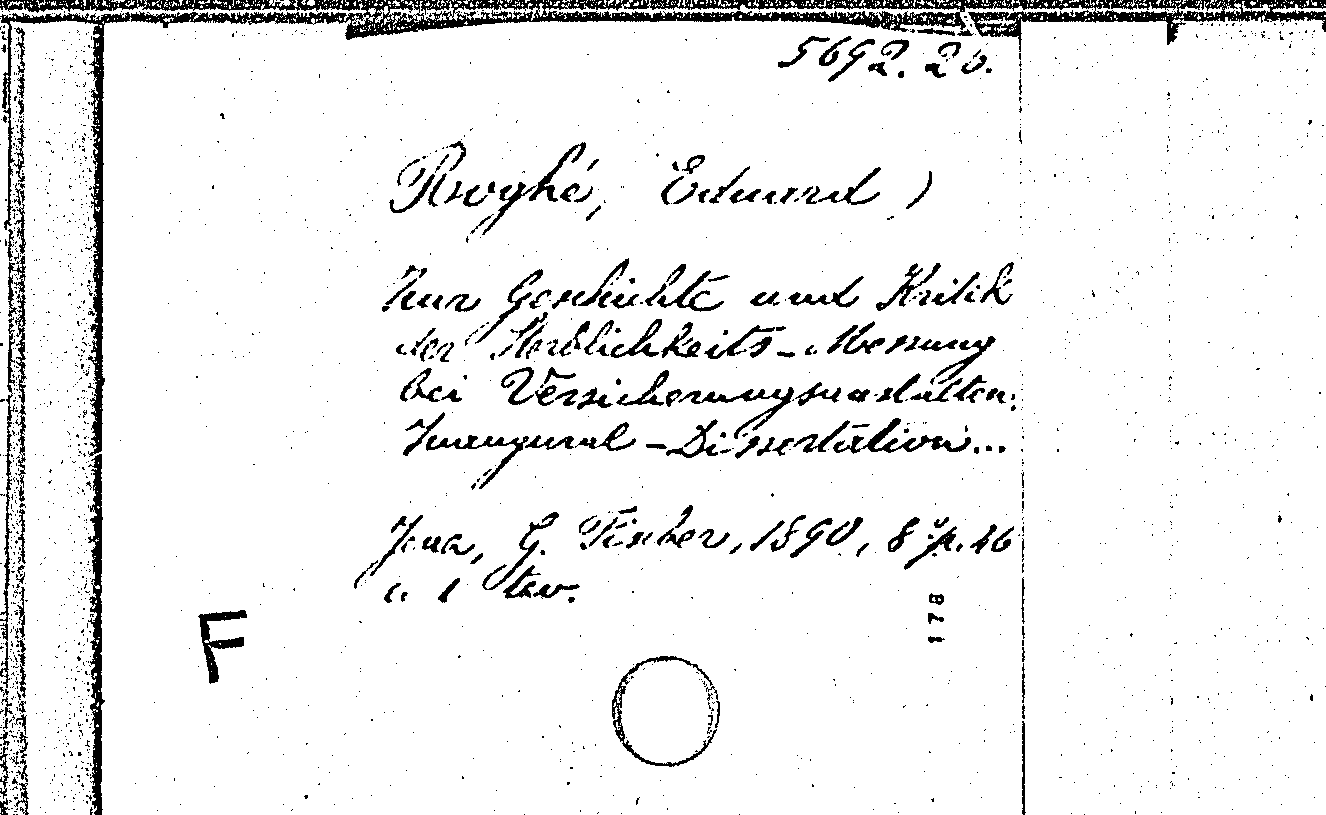 5692.26.
Roghé, Eduard )
Zur Geschichte und Kritik
der Sterblichkeits-Messung
bei Versicherungsanstalten.
Inaugural-Dissertation...
Jena, G. Fischer, 1890, 8º, p. 46
a. 1 tav.
178
F